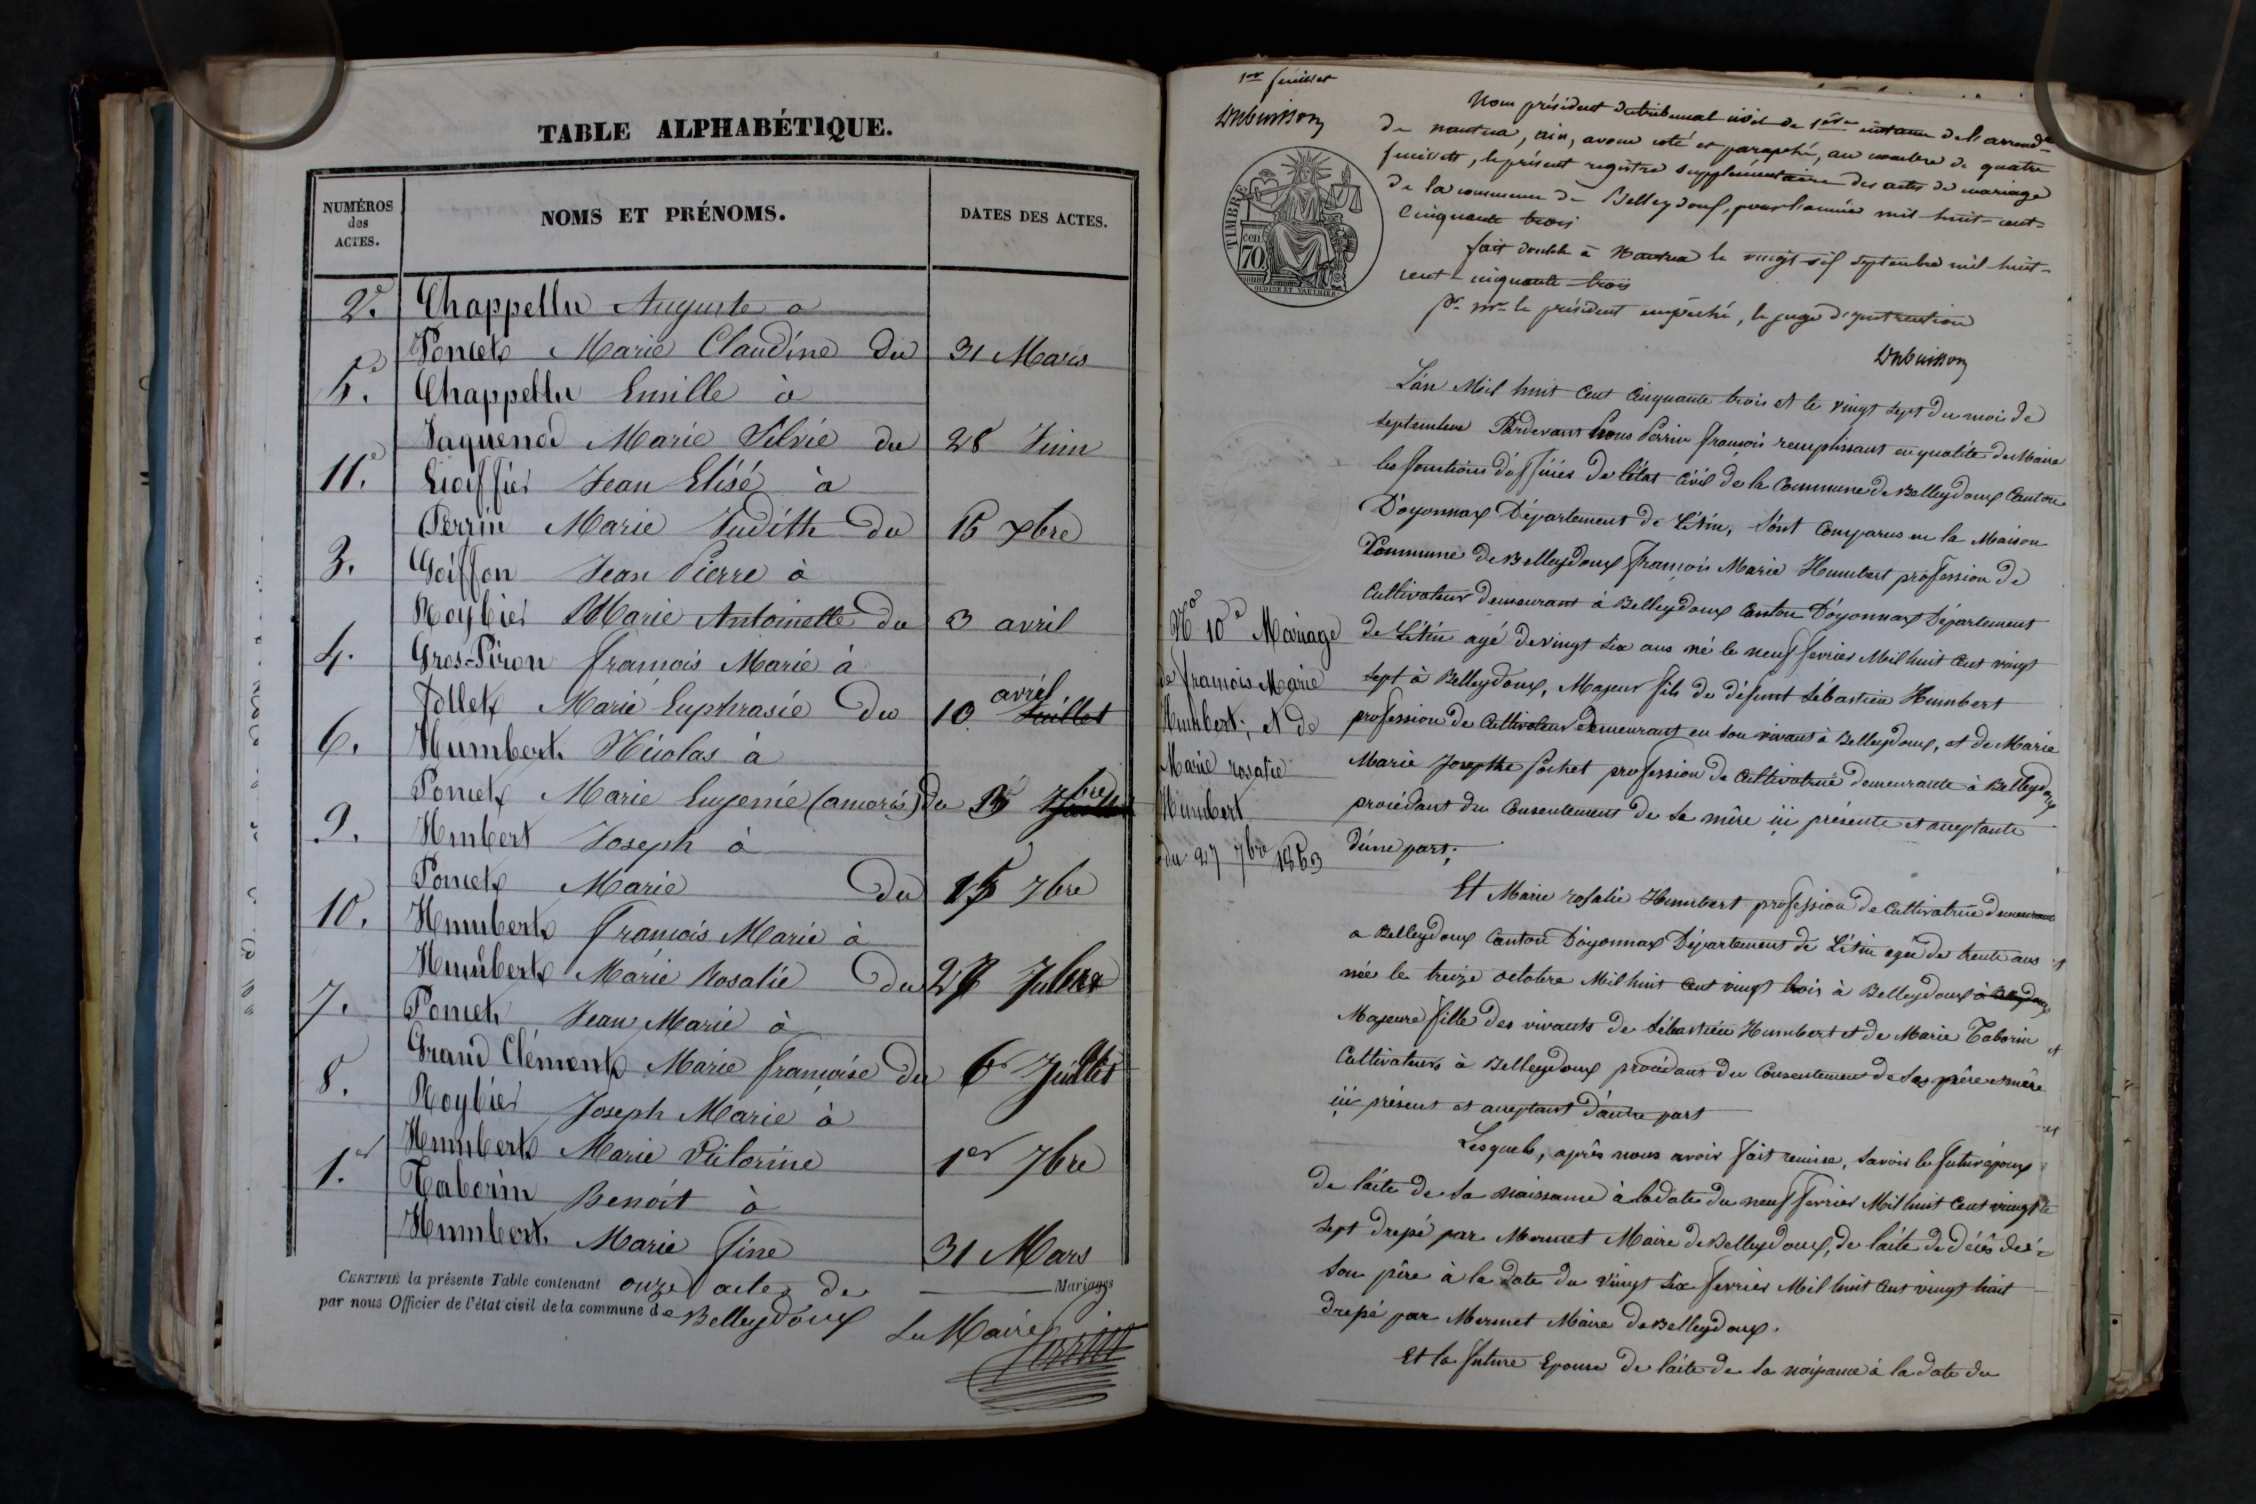 TABLE ALPHABÉTIQUE.
NUMÉROS
des
ACTES.
NOMS ET PRÉNOMS.
DATES DES ACTES.
2e. Chappellu Auguste a
Poncet Marie Claudine du 31 Mars
5e. Chappellu Emille à
Jaquenod Marie Silvie du 28 Juin
11e. Goiffier Jean Elisé à
Perrin Marie Judith du 15 xbre
3. Goiffon Jean Pierre à
Roybier Marie Antoinette du 3 avril
4. Gros-Piron françois Marie à
avril
Jollet Marie Euphrasie du 10 Juillet
6. Humbert Nicolas à
Poncet Marie Eugenie du 7bre
9. Humbert Joseph à
Poncet Marie du 15 7bre
10. Humbert François Marie à
Humbert Marie Rosalie du 27 7bre
7. Poncet Jean Marie à
Grand Clément Marie françoise du 6 Juillet
8. Roybier Joseph Marie à
Humbert Marie Victorine 1er 7bre
1.er Taborin Benoit à
Humbert Marie fine 31 Mars
CERTIFIÉ la présente Table contenant onze actes de Mariages
par nous Officier de l'état civil de la commune de Belleydoux
Le Maire
Perrin
1er feuillet
Dubuisson
TIMBRE
70
cen
OUDINE ET VAUTHIER
Nous président du tribunal civil de 1ère instance de l'arrondt
de nantua, ain, avons coté et paraphé, au nombre de quatre
feuillets, le présent registre supplémentaire des actes de mariage
de la commune de Belleydoux, pour l'année mil huit-cent-
Cinquante trois
fait double à Nantua le vingt six septembre mil huit-
cent-cinquante-trois
pr. mr. le président empêché, le juge d'instruction
Dubuisson
L'an Mil huit Cent Cinquante trois et le vingt sept du mois de
Septembre Pardevant Nous Perrin françois remplissant en qualité de Maire
les fonctions d'officier de l'état Civil de la Commune de Belleydoux Canton
D'oyonnax Département de L'Ain, Sont Comparus en la Maison
Commune de Belleydoux François Marie Humbert profession de
Cultivateur demeurant à Belleydoux Canton D'oyonnax Département
de L'Ain agé de vingt Six ans né le neuf fevrier Mil huit Cent vingt
Sept à Belleydoux, Majeur fils de défunt Sébastien Humbert
profession de Cultivateur demeurant en Son vivant à Belleydoux, et de Marie
Marie Josephte Pochet profession de Cultivatrice demeurante à Belleydoux
procédant du Consentement de Sa mère ici présente et acceptante
d'une part;
No 10e Mariage
de françois Marie
Humbert, et de
Marie rosalie
Humbert
du 27 7bre 1853
Et Marie rosalie Humbert profession de Cultivatrice demeurant
a Belleydoux Canton D'oyonnax Département de L'Ain agée de trente ans
née le treize octobre Mil huit Cent vingt trois à Belleydoux à Belleydoux
Majeure fille des vivants de Sébastien Humbert et de Marie Taborin
Cultivateurs à Belleydoux procédant du Consentement de Ses père et mère
ici présent et acceptant d'autre part
Lesquels, après nous avoir fait remise, Savoir le futur époux
de l'acte de Sa naissance à la date du neuf fevrier Mil huit Cent vingt
Sept dressé par Mermet Maire de Belleydoux, de l'acte de décès de
Son père à la date du vingt Six fevrier Mil huit Cent vingt huit
dressé par Mermet Maire de Belleydoux.
Et la future Epouse de l'acte de Sa naissance à la date du